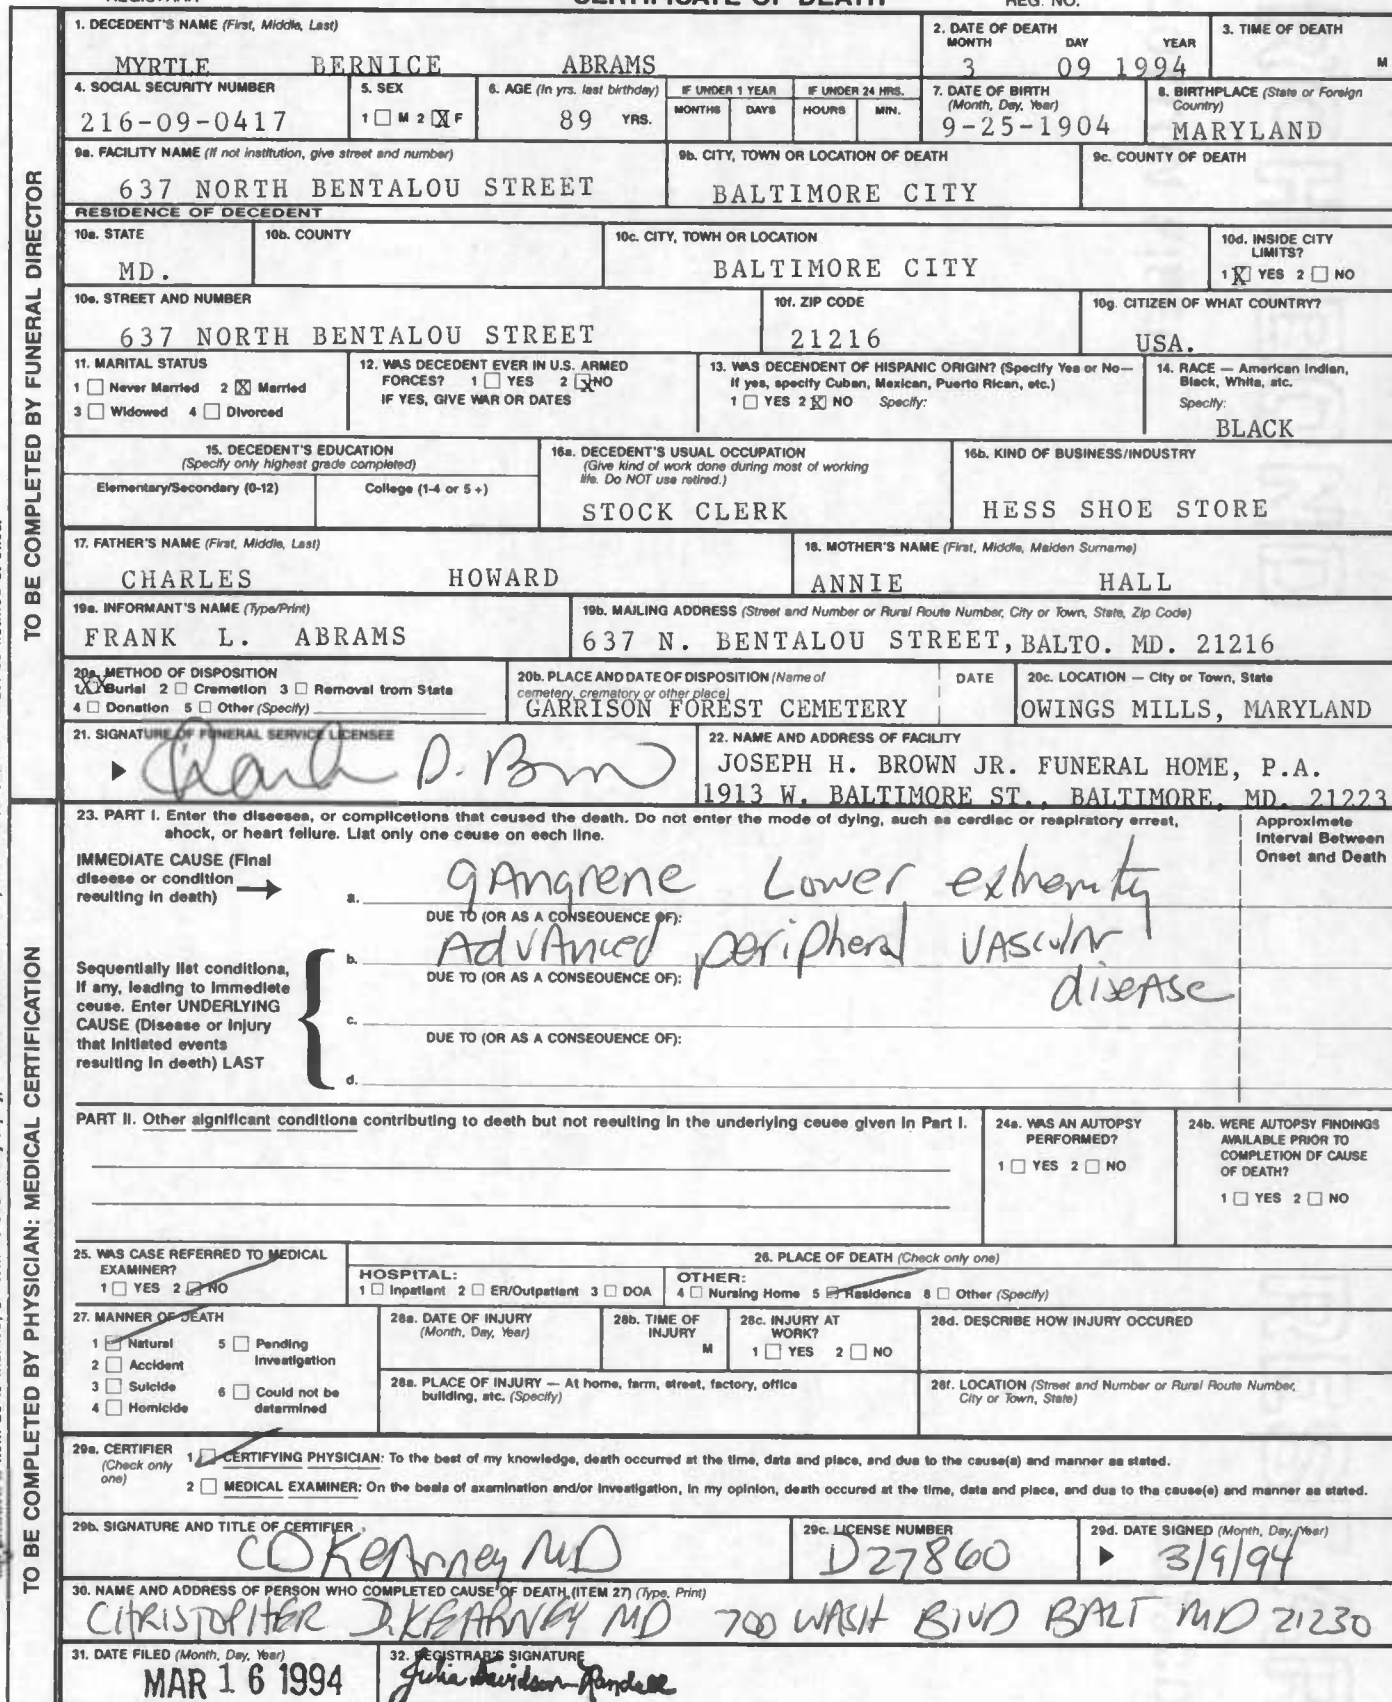 CERTIFICATE OF DEATH
REG. NO.
1. DECEDENT'S NAME (First, Middle, Last)
MYRTLE BERNICE ABRAMS
2. DATE OF DEATH
MONTH DAY YEAR
3 09 1994
3. TIME OF DEATH
M
4. SOCIAL SECURITY NUMBER
216-09-0417
5. SEX
1 ☐ M 2 ☒ F
6. AGE (In yrs. last birthday)
89 YRS.
IF UNDER 1 YEAR
MONTHS DAYS
IF UNDER 24 HRS.
HOURS MIN.
7. DATE OF BIRTH
(Month, Day, Year)
9-25-1904
8. BIRTHPLACE (State or Foreign
Country)
MARYLAND
9a. FACILITY NAME (If not institution, give street and number)
637 NORTH BENTALOU STREET
9b. CITY, TOWN OR LOCATION OF DEATH
BALTIMORE CITY
9c. COUNTY OF DEATH
RESIDENCE OF DECEDENT
10a. STATE
MD.
10b. COUNTY
10c. CITY, TOWN OR LOCATION
BALTIMORE CITY
10d. INSIDE CITY
LIMITS?
1 ☒ YES 2 ☐ NO
10e. STREET AND NUMBER
637 NORTH BENTALOU STREET
10f. ZIP CODE
21216
10g. CITIZEN OF WHAT COUNTRY?
USA.
11. MARITAL STATUS
1 ☐ Never Married 2 ☒ Married
3 ☐ Widowed 4 ☐ Divorced
12. WAS DECEDENT EVER IN U.S. ARMED
FORCES? 1 ☐ YES 2 ☒ NO
IF YES, GIVE WAR OR DATES
13. WAS DECENDENT OF HISPANIC ORIGIN? (Specify Yes or No—
If yes, specify Cuban, Mexican, Puerto Rican, etc.)
1 ☐ YES 2 ☒ NO Specify:
14. RACE — American Indian,
Black, White, etc.
Specify:
BLACK
15. DECEDENT'S EDUCATION
(Specify only highest grade completed)
Elementary/Secondary (0-12) College (1-4 or 5+)
16a. DECEDENT'S USUAL OCCUPATION
(Give kind of work done during most of working
life. Do NOT use retired.)
STOCK CLERK
16b. KIND OF BUSINESS/INDUSTRY
HESS SHOE STORE
17. FATHER'S NAME (First, Middle, Last)
CHARLES HOWARD
18. MOTHER'S NAME (First, Middle, Maiden Surname)
ANNIE HALL
19a. INFORMANT'S NAME (Type/Print)
FRANK L. ABRAMS
19b. MAILING ADDRESS (Street and Number or Rural Route Number, City or Town, State, Zip Code)
637 N. BENTALOU STREET, BALTO. MD. 21216
20a. METHOD OF DISPOSITION
1 XX Burial 2 ☐ Cremation 3 ☐ Removal from State
4 ☐ Donation 5 ☐ Other (Specify)
20b. PLACE AND DATE OF DISPOSITION (Name of
cemetery, crematory or other place)
GARRISON FOREST CEMETERY
DATE
20c. LOCATION — City or Town, State
OWINGS MILLS, MARYLAND
21. SIGNATURE OF FUNERAL SERVICE LICENSEE
22. NAME AND ADDRESS OF FACILITY
JOSEPH H. BROWN JR. FUNERAL HOME, P.A.
1913 W. BALTIMORE ST., BALTIMORE, MD. 21223
TO BE COMPLETED BY FUNERAL DIRECTOR
23. PART I. Enter the diseases, or complications that caused the death. Do not enter the mode of dying, such as cardiac or respiratory arrest,
shock, or heart failure. List only one cause on each line.
Approximate
Interval Between
Onset and Death
IMMEDIATE CAUSE (Final
disease or condition
resulting in death)
a. gangrene Lower extremity
DUE TO (OR AS A CONSEQUENCE OF):
b. Advanced peripheral vascular
disease
DUE TO (OR AS A CONSEQUENCE OF):
Sequentially list conditions,
if any, leading to immediate
cause. Enter UNDERLYING
CAUSE (Disease or injury
that initiated events
resulting in death) LAST
c.
DUE TO (OR AS A CONSEQUENCE OF):
d.
PART II. Other significant conditions contributing to death but not resulting in the underlying cause given in Part I.
24a. WAS AN AUTOPSY
PERFORMED?
1 ☐ YES 2 ☐ NO
24b. WERE AUTOPSY FINDINGS
AVAILABLE PRIOR TO
COMPLETION OF CAUSE
OF DEATH?
1 ☐ YES 2 ☐ NO
25. WAS CASE REFERRED TO MEDICAL
EXAMINER?
1 ☐ YES 2 ☑ NO
26. PLACE OF DEATH (Check only one)
HOSPITAL:
1 ☐ Inpatient 2 ☐ ER/Outpatient 3 ☐ DOA
OTHER:
4 ☐ Nursing Home 5 ☑ Residence 6 ☐ Other (Specify)
27. MANNER OF DEATH
1 ☑ Natural 5 ☐ Pending
Investigation
2 ☐ Accident
3 ☐ Suicide 6 ☐ Could not be
determined
4 ☐ Homicide
28a. DATE OF INJURY
(Month, Day, Year)
28b. TIME OF
INJURY
M
28c. INJURY AT
WORK?
1 ☐ YES 2 ☐ NO
28d. DESCRIBE HOW INJURY OCCURED
28e. PLACE OF INJURY — At home, farm, street, factory, office
building, etc. (Specify)
28f. LOCATION (Street and Number or Rural Route Number,
City or Town, State)
29a. CERTIFIER
(Check only
one)
1 ☑ CERTIFYING PHYSICIAN: To the best of my knowledge, death occurred at the time, date and place, and due to the cause(s) and manner as stated.
2 ☐ MEDICAL EXAMINER: On the basis of examination and/or investigation, in my opinion, death occured at the time, date and place, and due to the cause(s) and manner as stated.
29b. SIGNATURE AND TITLE OF CERTIFIER
CD Kearney MD
29c. LICENSE NUMBER
D27860
29d. DATE SIGNED (Month, Day, Year)
3/9/94
30. NAME AND ADDRESS OF PERSON WHO COMPLETED CAUSE OF DEATH (ITEM 27) (Type, Print)
CHRISTOPHER D. KEARNEY MD 700 WASH BLVD BALT MD 21230
31. DATE FILED (Month, Day, Year)
MAR 16 1994
32. REGISTRAR'S SIGNATURE
Julia Davidson-Randall
TO BE COMPLETED BY PHYSICIAN: MEDICAL CERTIFICATION